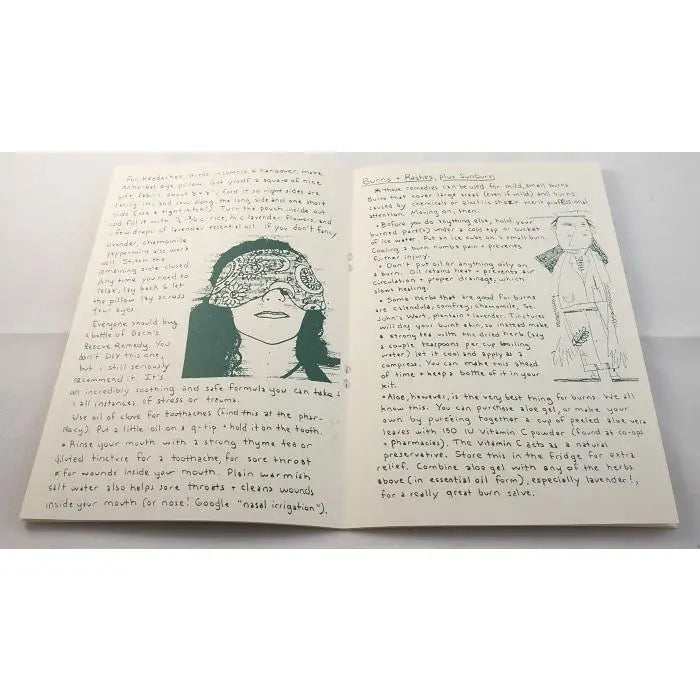 For headaches, stress, insomnia & hangover, make
an herbal eye pillow. Get yrself a square of nice
soft fabric about
fold it so right sides are
facing in, and sew along the long side and one short
side (use a tight stitch). Turn the pouch inside out
and fill it with
rice,
lavender flowers, and
few drops of lavender essential oil. If you don't fancy
lavender, chamomile
peppermint also work
well. Stitch the
remaining side closed.
Any time you need to
relax, lay back & let
the pillow lay across
your eyes
Everyone should buy
a bottle of Bach's
Rescue Remedy. You
don't DIY this one,
but i still seriously
recommend it. It's
an incredibly soothing and safe formula you can take
all instances of stress or trauma.
Use oil of clove for toothaches (find this at the phar-
macy). Put a little oil on a q-tip + hold it on the tooth.
• Rinse your mouth with a strong thyme tea or
diluted tincture for a toothache, for sore throat
or for wounds inside your mouth. Plain warmish
salt water also helps sore throats + cleans wounds
inside your mouth (or nose! Google "nasal irrigation").
Burns + Rashes, plus Sunburn
these remedies can be used for mild, small burns.
Burns that cover large areas (even if mild) and burns
caused by chemicals or electric shock merit professional
attention. Moving on, then:
• Before you do anything else, hold your
burned part(s) under a cold tap or bucket
of ice water. Put an ice cube on a small burn.
Cooling a burn numbs pain + prevents
further injury.
• Don't put oil or anything oily on
a burn. Oil retains heat + prevents air
circulation + proper drainage, which
slows healing.
• Some herbs that are good for burns
are calendula, comfrey, chamomile, St.
John's Wort, plantain + lavender. Tinctures
will dry your burnt skin, so instead make
a strong tea with the dried herb (say
a couple teaspoons per cup boiling
water) let it cool and apply as a
compress. You can make this ahead
of time + keep a bottle of it in your
kit.
• Aloe, however, is the very best thing for burns. We all
know this. You can purchase aloe gel, or make your
own by pureeing together a cup of peeled aloe vera
leaves with 150 IU vitamin C powder (found at co-ops
+ pharmacies). The vitamin C acts as a natural
preservative. Store this in the fridge for extra
relief. Combine aloe gel with any of the herbs
above (in essential oil form), especially lavender!,
for a really great burn salve.